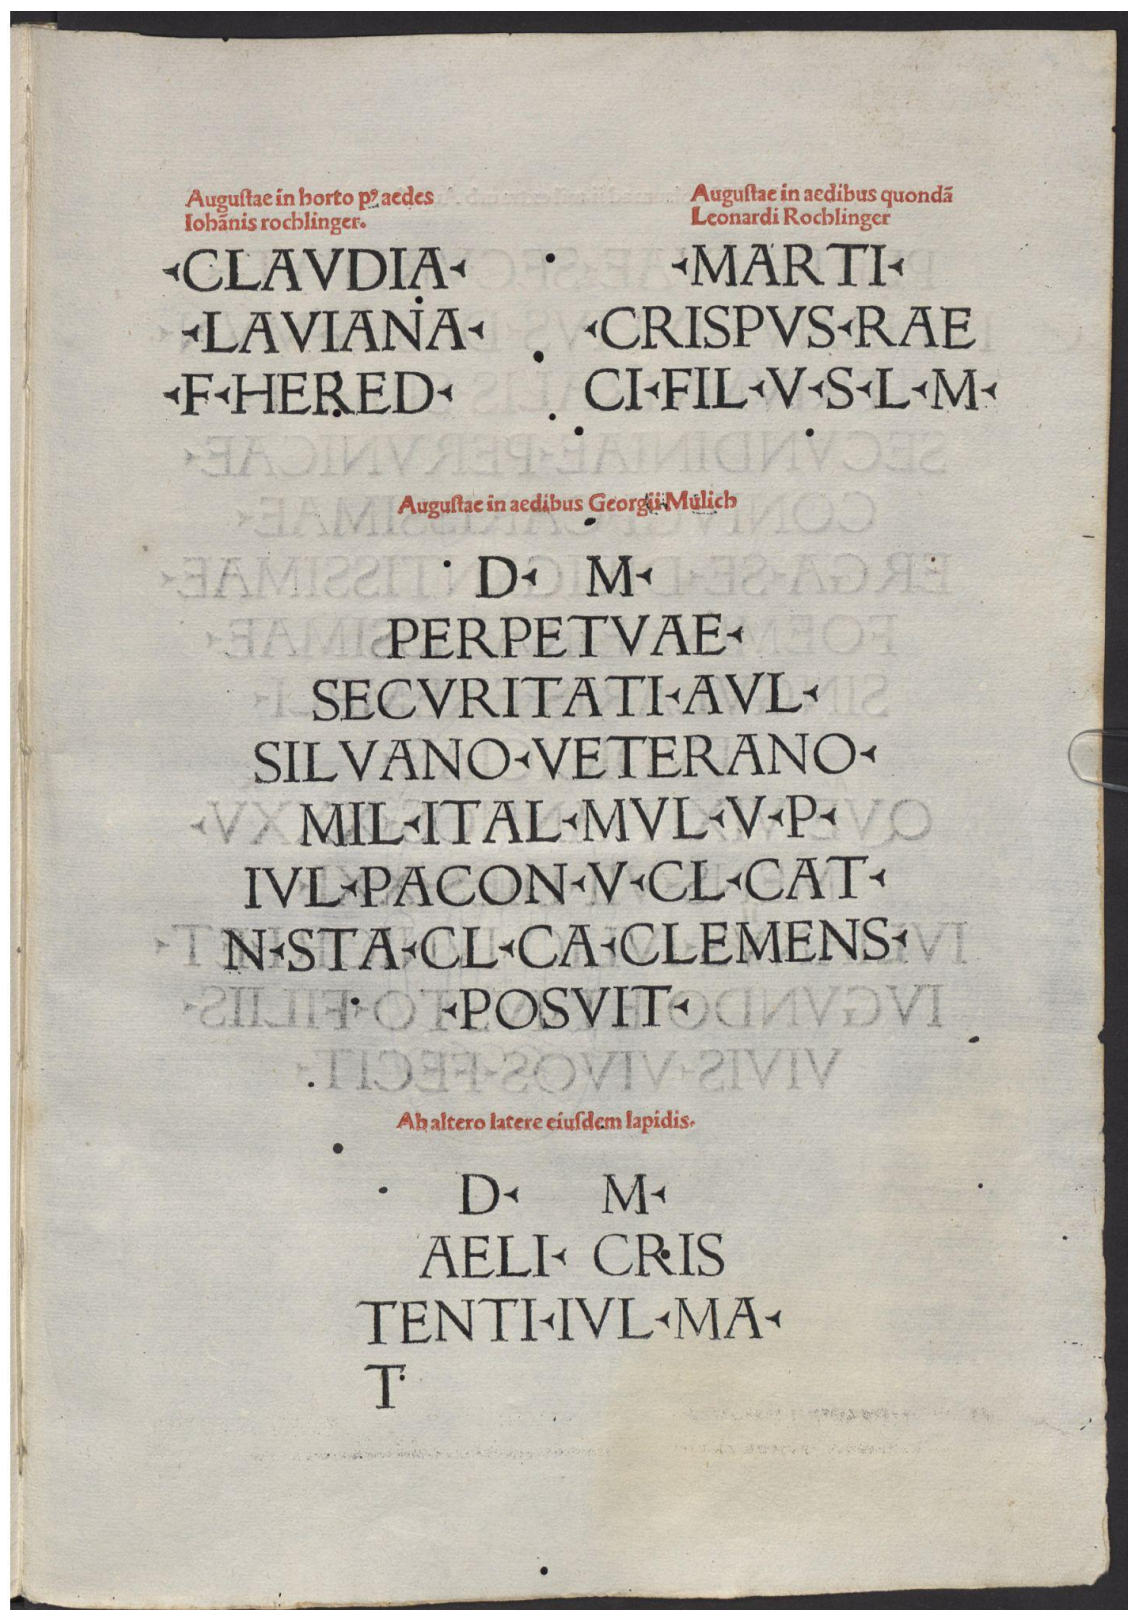 Auguſtae in horto pꝰ aedes
Iohānis rochlinger.
‹CLAVDIA‹
‹LAVIANA‹
‹F‹HERED‹
Auguſtae in aedibus quondā
Leonardi Rochlinger
‹MARTI‹
‹CRISPVS‹RAE
CI‹FIL‹V‹S‹L‹M‹
Auguſtae in aedibus Georgii Mulich
D‹ M‹
PERPETVAE‹
SECVRITATI‹AVL‹
SILVANO‹VETERANO‹
MIL‹ITAL‹MVL‹V‹P‹
IVL‹PACON‹V‹CL‹CAT‹
N‹STA‹CL‹CA‹CLEMENS‹
‹POSVIT‹
Ab altero latere eiuſdem lapidis.
D‹ M‹
AELI‹ CRIS
TENTI‹IVL‹MA‹
T